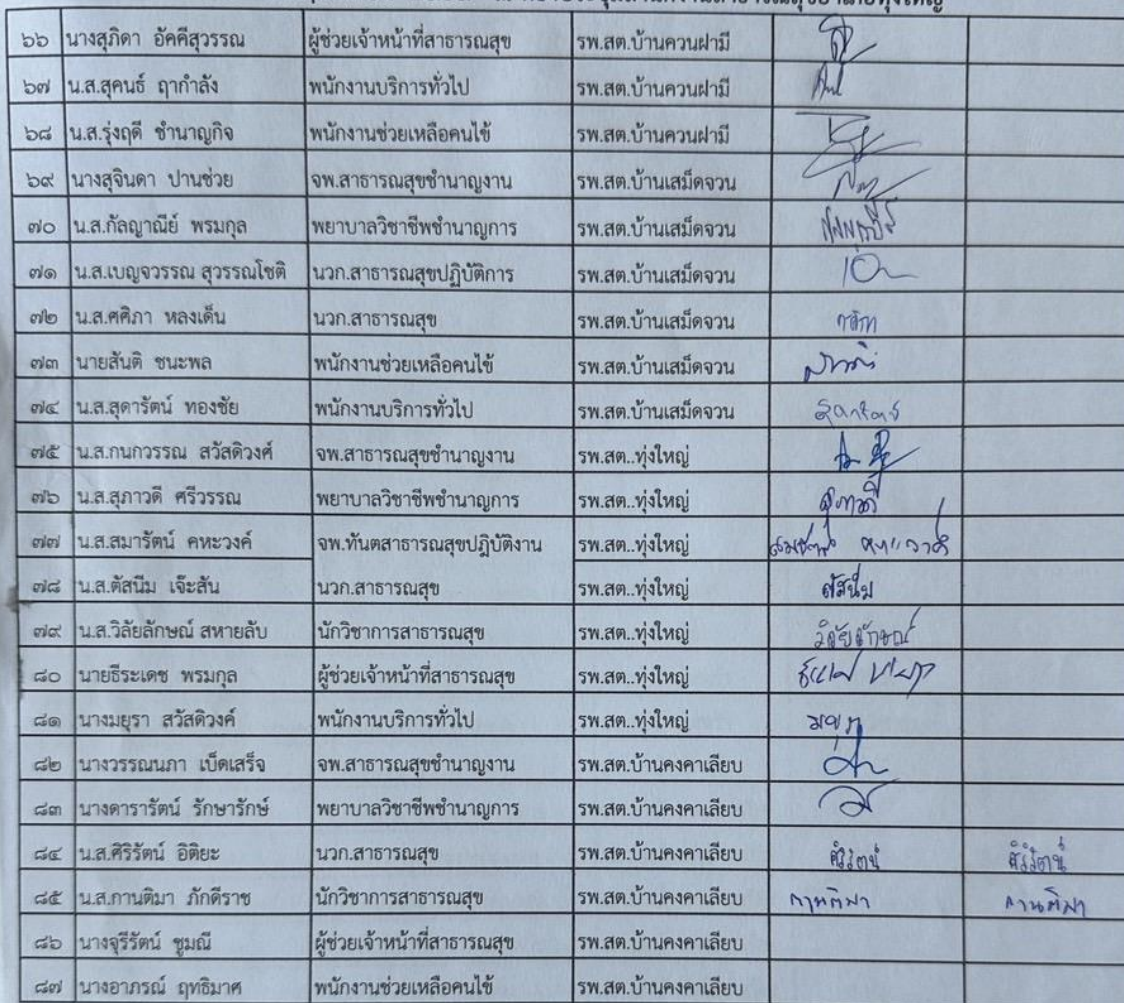 ๖๖ นางสุภิดา อัคคีสุวรรณ ผู้ช่วยเจ้าหน้าที่สาธารณสุข รพ.สต.บ้านควนฝามี
๖๗ น.ส.สุคนธ์ ฤากำลัง พนักงานบริการทั่วไป รพ.สต.บ้านควนฝามี
๖๘ น.ส.รุ่งฤดี ชำนาญกิจ พนักงานช่วยเหลือคนไข้ รพ.สต.บ้านควนฝามี
๖๙ นางสุจินดา ปานช่วย จพ.สาธารณสุขชำนาญงาน รพ.สต.บ้านเสม็ดจวน
๗๐ น.ส.กัลญาณีย์ พรมกุล พยาบาลวิชาชีพชำนาญการ รพ.สต.บ้านเสม็ดจวน
๗๑ น.ส.เบญจวรรณ สุวรรณโชติ นวก.สาธารณสุขปฏิบัติการ รพ.สต.บ้านเสม็ดจวน
๗๒ น.ส.ศศิภา หลงเด็น นวก.สาธารณสุข รพ.สต.บ้านเสม็ดจวน
๗๓ นายสันติ ชนะพล พนักงานช่วยเหลือคนไข้ รพ.สต.บ้านเสม็ดจวน
๗๔ น.ส.สุดารัตน์ ทองชัย พนักงานบริการทั่วไป รพ.สต.บ้านเสม็ดจวน สุดารัตน์
๗๕ น.ส.กนกวรรณ สวัสดิวงศ์ จพ.สาธารณสุขชำนาญงาน รพ.สต..ทุ่งใหญ่
๗๖ น.ส.สุภาวดี ศรีวรรณ พยาบาลวิชาชีพชำนาญการ รพ.สต..ทุ่งใหญ่ สุภาวดี
๗๗ น.ส.สมารัตน์ คหะวงค์ จพ.ทันตสาธารณสุขปฏิบัติงาน รพ.สต..ทุ่งใหญ่
๗๘ น.ส.ตัสนีม เจ๊ะสัน นวก.สาธารณสุข รพ.สต..ทุ่งใหญ่ ตัสนีม
๗๙ น.ส.วิลัยลักษณ์ สหายลับ นักวิชาการสาธารณสุข รพ.สต..ทุ่งใหญ่ วิลัยลักษณ์
๘๐ นายธีระเดช พรมกุล ผู้ช่วยเจ้าหน้าที่สาธารณสุข รพ.สต..ทุ่งใหญ่
๘๑ นางมยุรา สวัสดิวงค์ พนักงานบริการทั่วไป รพ.สต..ทุ่งใหญ่ มยุรา
๘๒ นางวรรณนภา เบ็ดเสร็จ จพ.สาธารณสุขชำนาญงาน รพ.สต.บ้านคงคาเลียบ
๘๓ นางดารารัตน์ รักษารักษ์ พยาบาลวิชาชีพชำนาญการ รพ.สต.บ้านคงคาเลียบ
๘๔ น.ส.ศิริรัตน์ อิติยะ นวก.สาธารณสุข รพ.สต.บ้านคงคาเลียบ ศิริรัตน์ ศิริรัตน์
๘๕ น.ส.กานติมา ภักดีราช นักวิชาการสาธารณสุข รพ.สต.บ้านคงคาเลียบ กานติมา กานติมา
๘๖ นางจุรีรัตน์ ชูมณี ผู้ช่วยเจ้าหน้าที่สาธารณสุข รพ.สต.บ้านคงคาเลียบ
๘๗ นางอาภรณ์ ฤทธิมาศ พนักงานช่วยเหลือคนไข้ รพ.สต.บ้านคงคาเลียบ